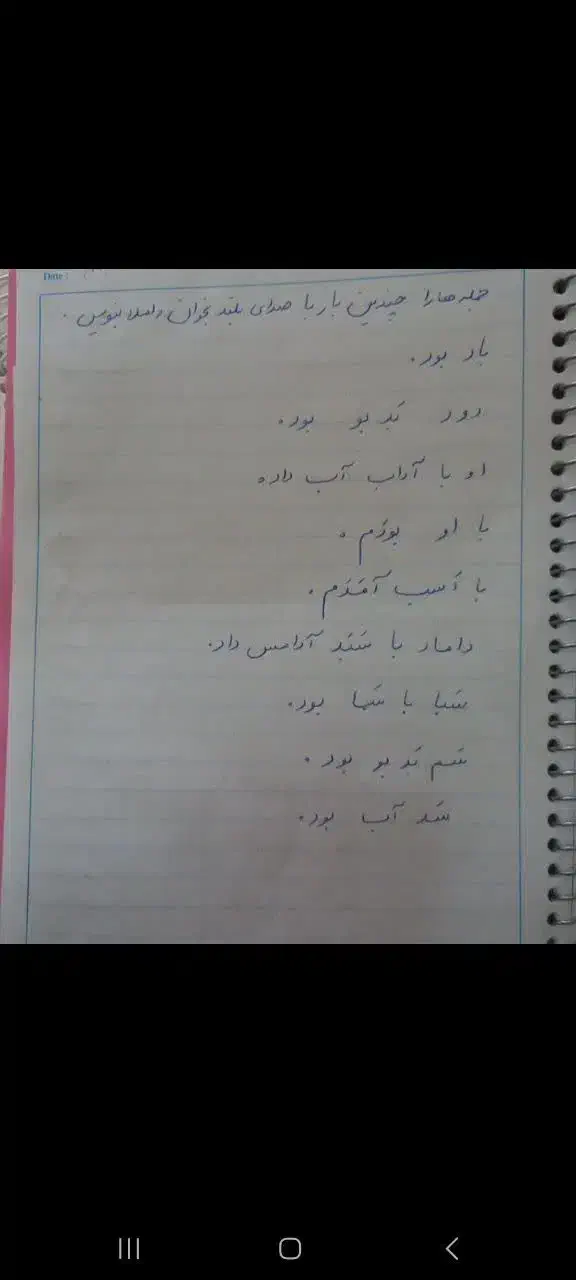 Date :
جمله هارا چندین بار با صدای بلند بخوان و املا بنویس.
باد بود.
دود بَد بو بود.
او با آداب آب داد.
با او بودَم.
با اَسب آمَدَم.
دامدار با سَبَد آمد داد.
سَبا با سَما بود.
سَم بَد بو بود.
سَد آب بود.